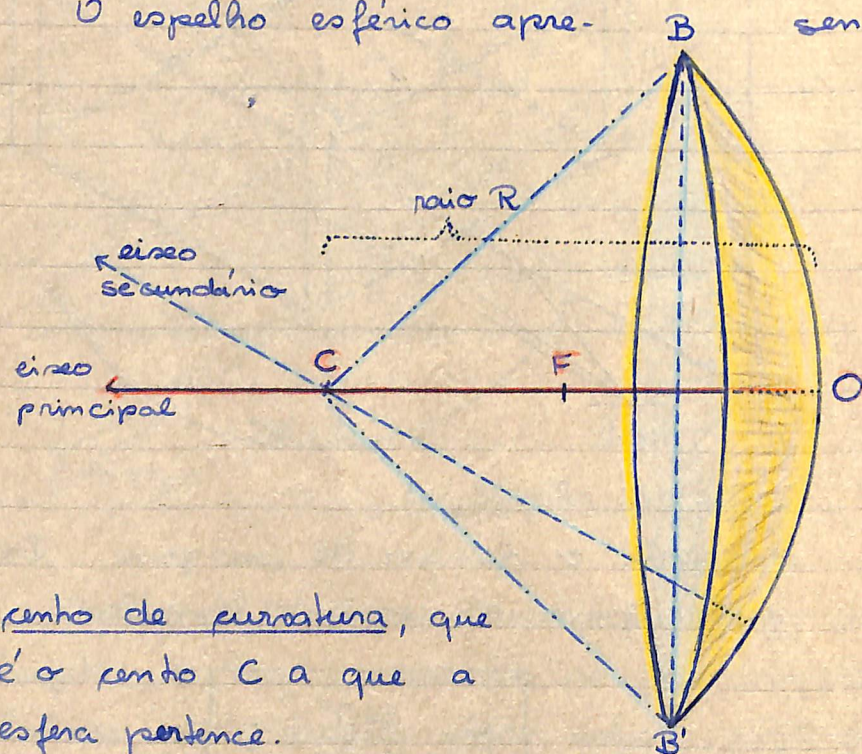 O espelho esférico apre- sen
B
raio R
eixo
secundário
C
F
eixo
principal
O
centro de curvatura, que
é o centro C a que a
esfera pertence.
B'